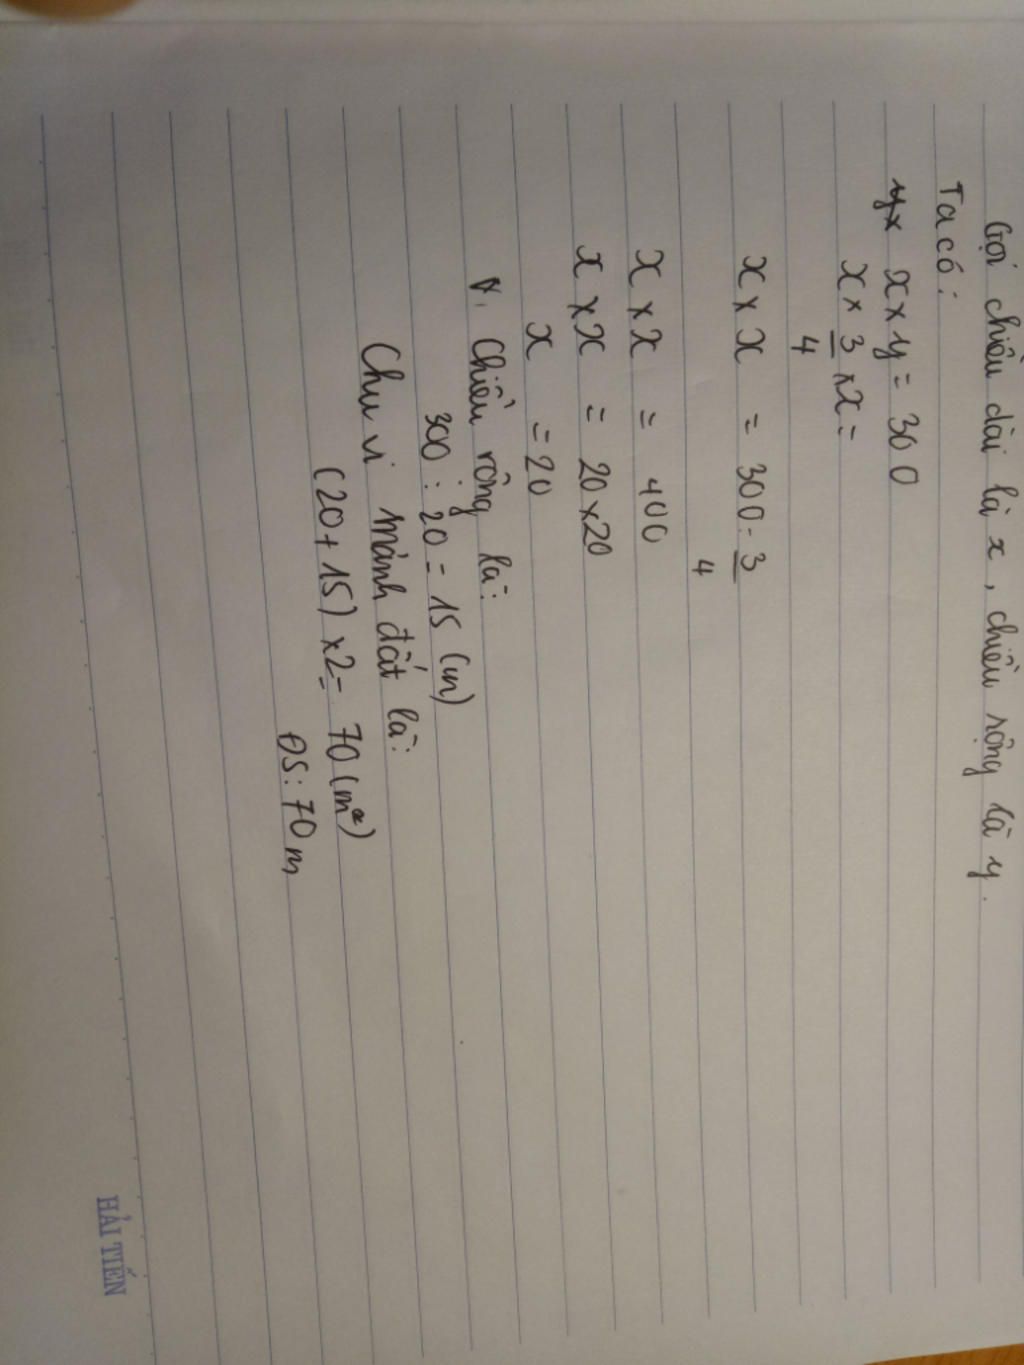 Gọi chiều dài là x, chiều rộng là y.
Ta có:
x × y = 300
x × 3/4 × x =
x × x = 300 : 3/4
x × x = 400
x × x = 20 × 20
x = 20
Chiều rộng là:
300 : 20 = 15 (m)
Chu vi mảnh đất là:
(20 + 15) × 2 = 70 (m)
ĐS: 70 m
HẢI TIẾN